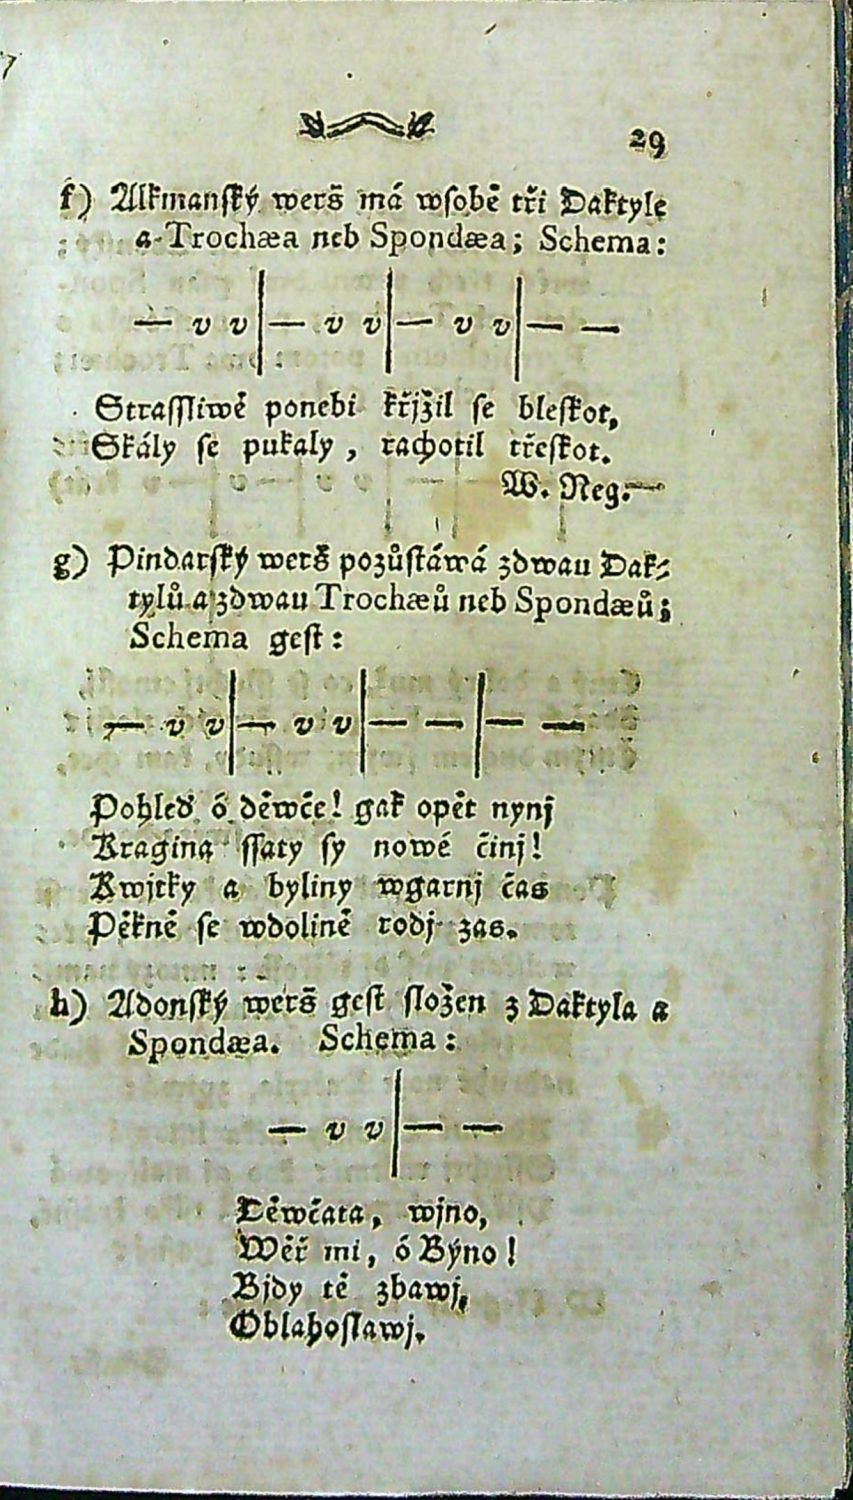 29
f) Alkmanſký werš má wſobě tři Daktyle
a Trochæa neb Spondæa; Schema:
— v v | — v v | — v v | — —
Straſſliwě ponebi křjžil ſe bleſkot,
Skály ſe pukaly, rachotil třeſkot.
W. Neg.—
g) Pindarſký werš pozůſtáwá zdwau Dak⸗
tylů a zdwau Trochæů neb Spondæů;
Schema geſt:
— v v | — v v | — — | — —
Pohleď ó děwče! gak opět nynj
Kragina ſſaty ſy nowé činj!
Kwjtky a byliny wgarnj čas
Pěkně ſe wdolině rodj zas.
h) Adonſký werš geſt ſložen z Daktyla a
Spondæa. Schema:
— v v | — —
Děwčata, wjno,
Wěř mi, ó Býno!
Bjdy tě zbawj,
Oblahoſlawj.